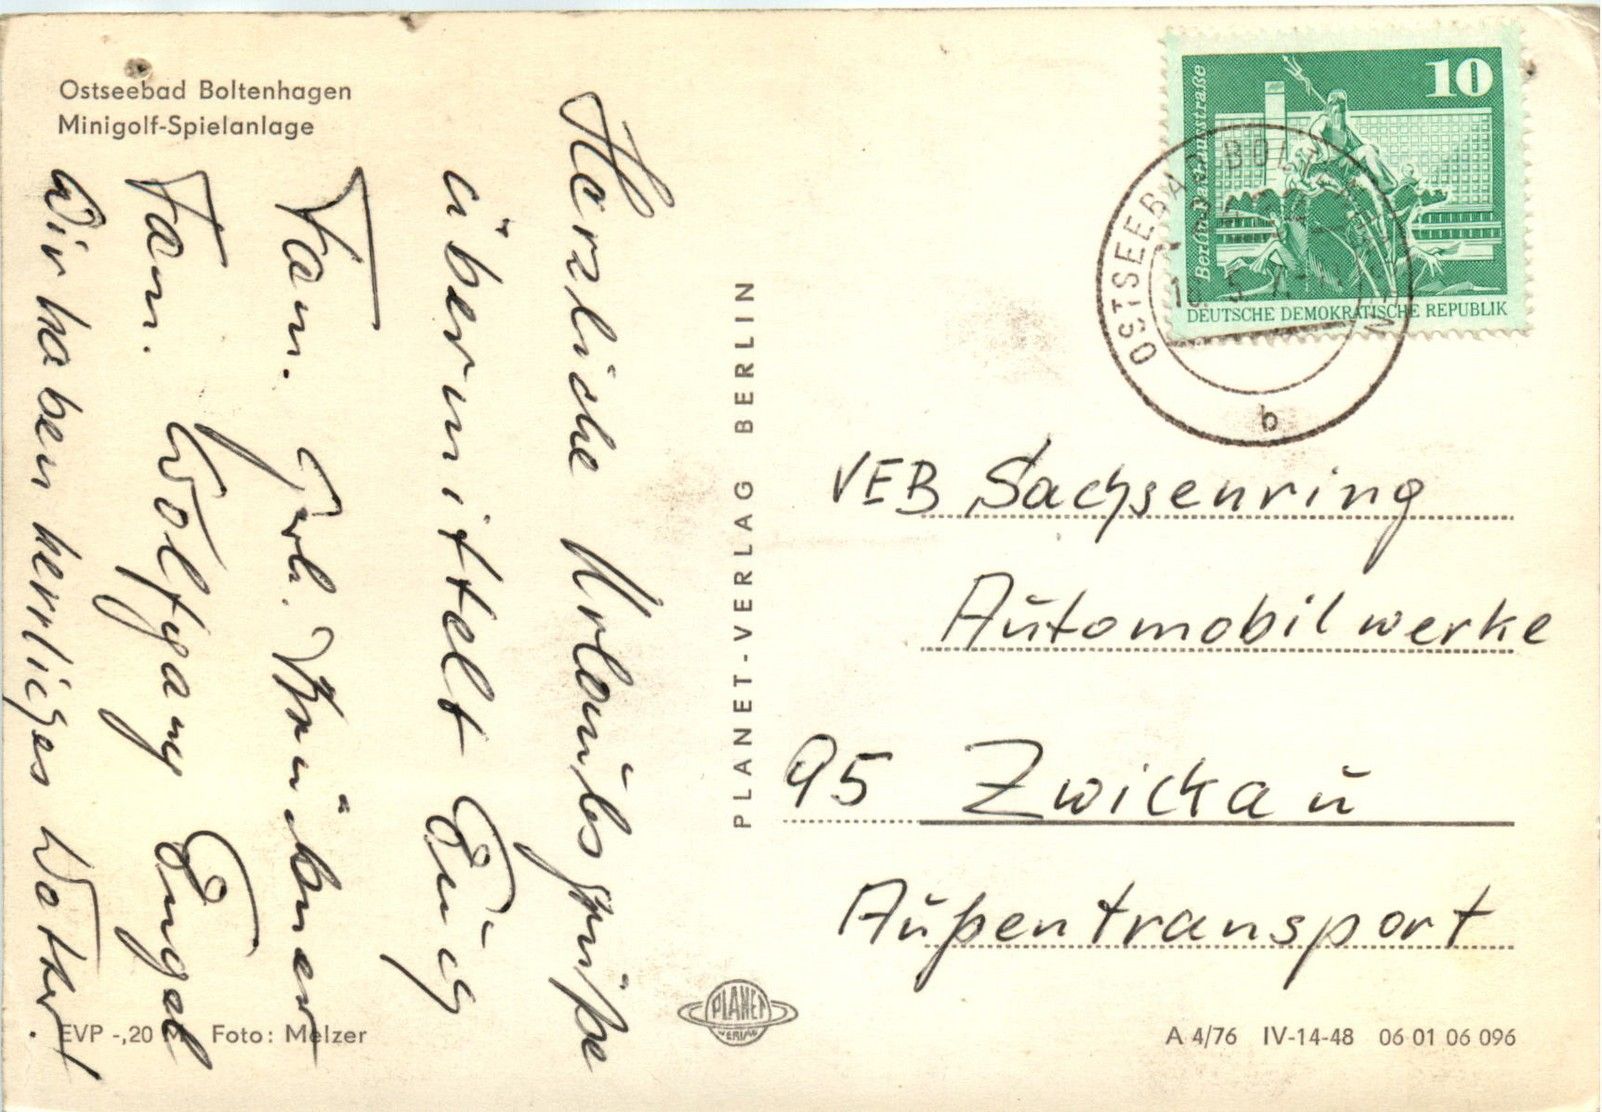 Ostseebad Boltenhagen
Minigolf-Spielanlage
Herzliche Urlaubsgrüße
übermittelt Euch
Fam. Krübner
Fam. Wolfgang Engel
Wir haben herrliches Wetter!
PLANET-VERLAG BERLIN
PLANET
VERLAG
10
Berlin-Rathausstraße
DEUTSCHE DEMOKRATISCHE REPUBLIK
OSTSEEBAD BOLTENHAGEN
b
VEB Sachsenring
Automobilwerke
95 Zwickau
Außentransport
EVP -,20 M Foto: Melzer
A 4/76 IV-14-48 06 01 06 096